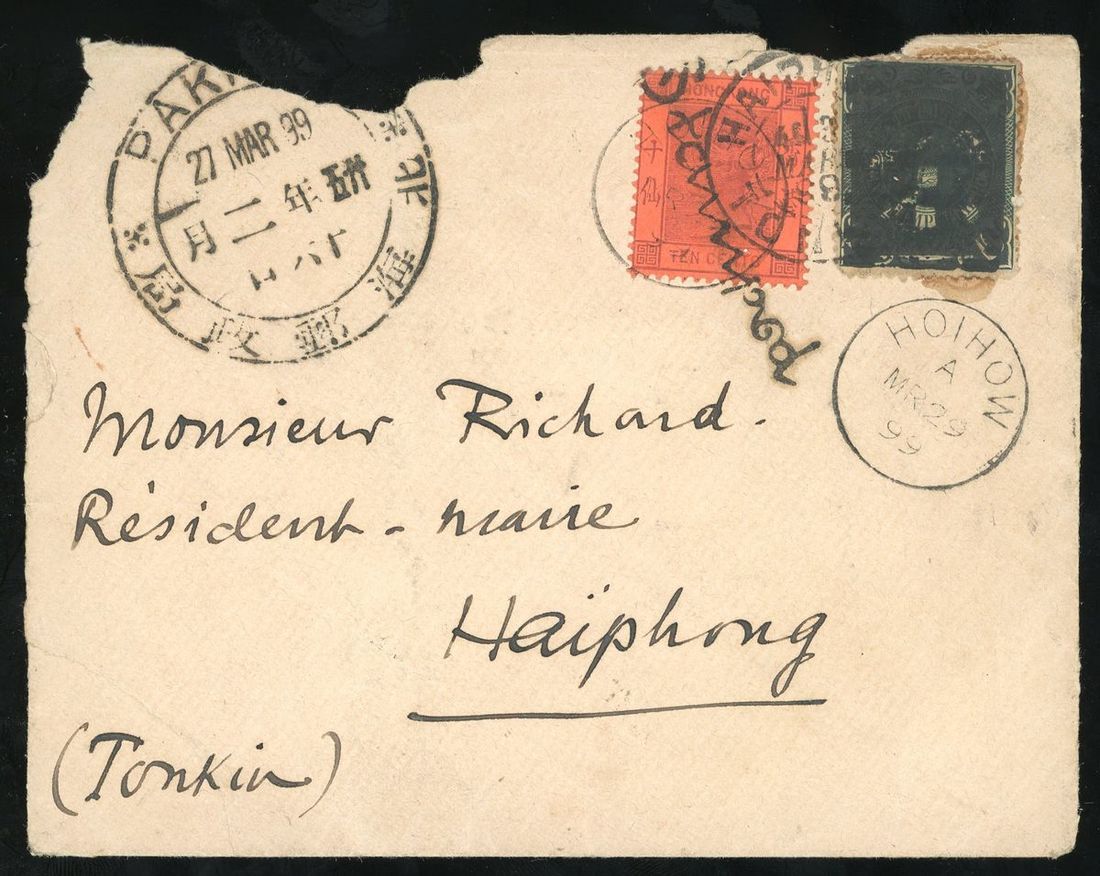 27 MAR 99
年
二
月
郵 政 局
HONG KONG
TEN CENTS
HOIHOW
A
MR 29
99
Monsieur Richard.
Résident - maire
Haïphong
(Tonkin)